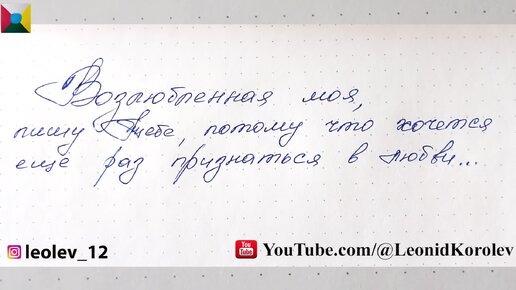 Возлюбленная моя,
пишу тебе, потому что хочется
еще раз признаться в любви...
leolev_12
You Tube
YouTube.com/@LeonidKorolev